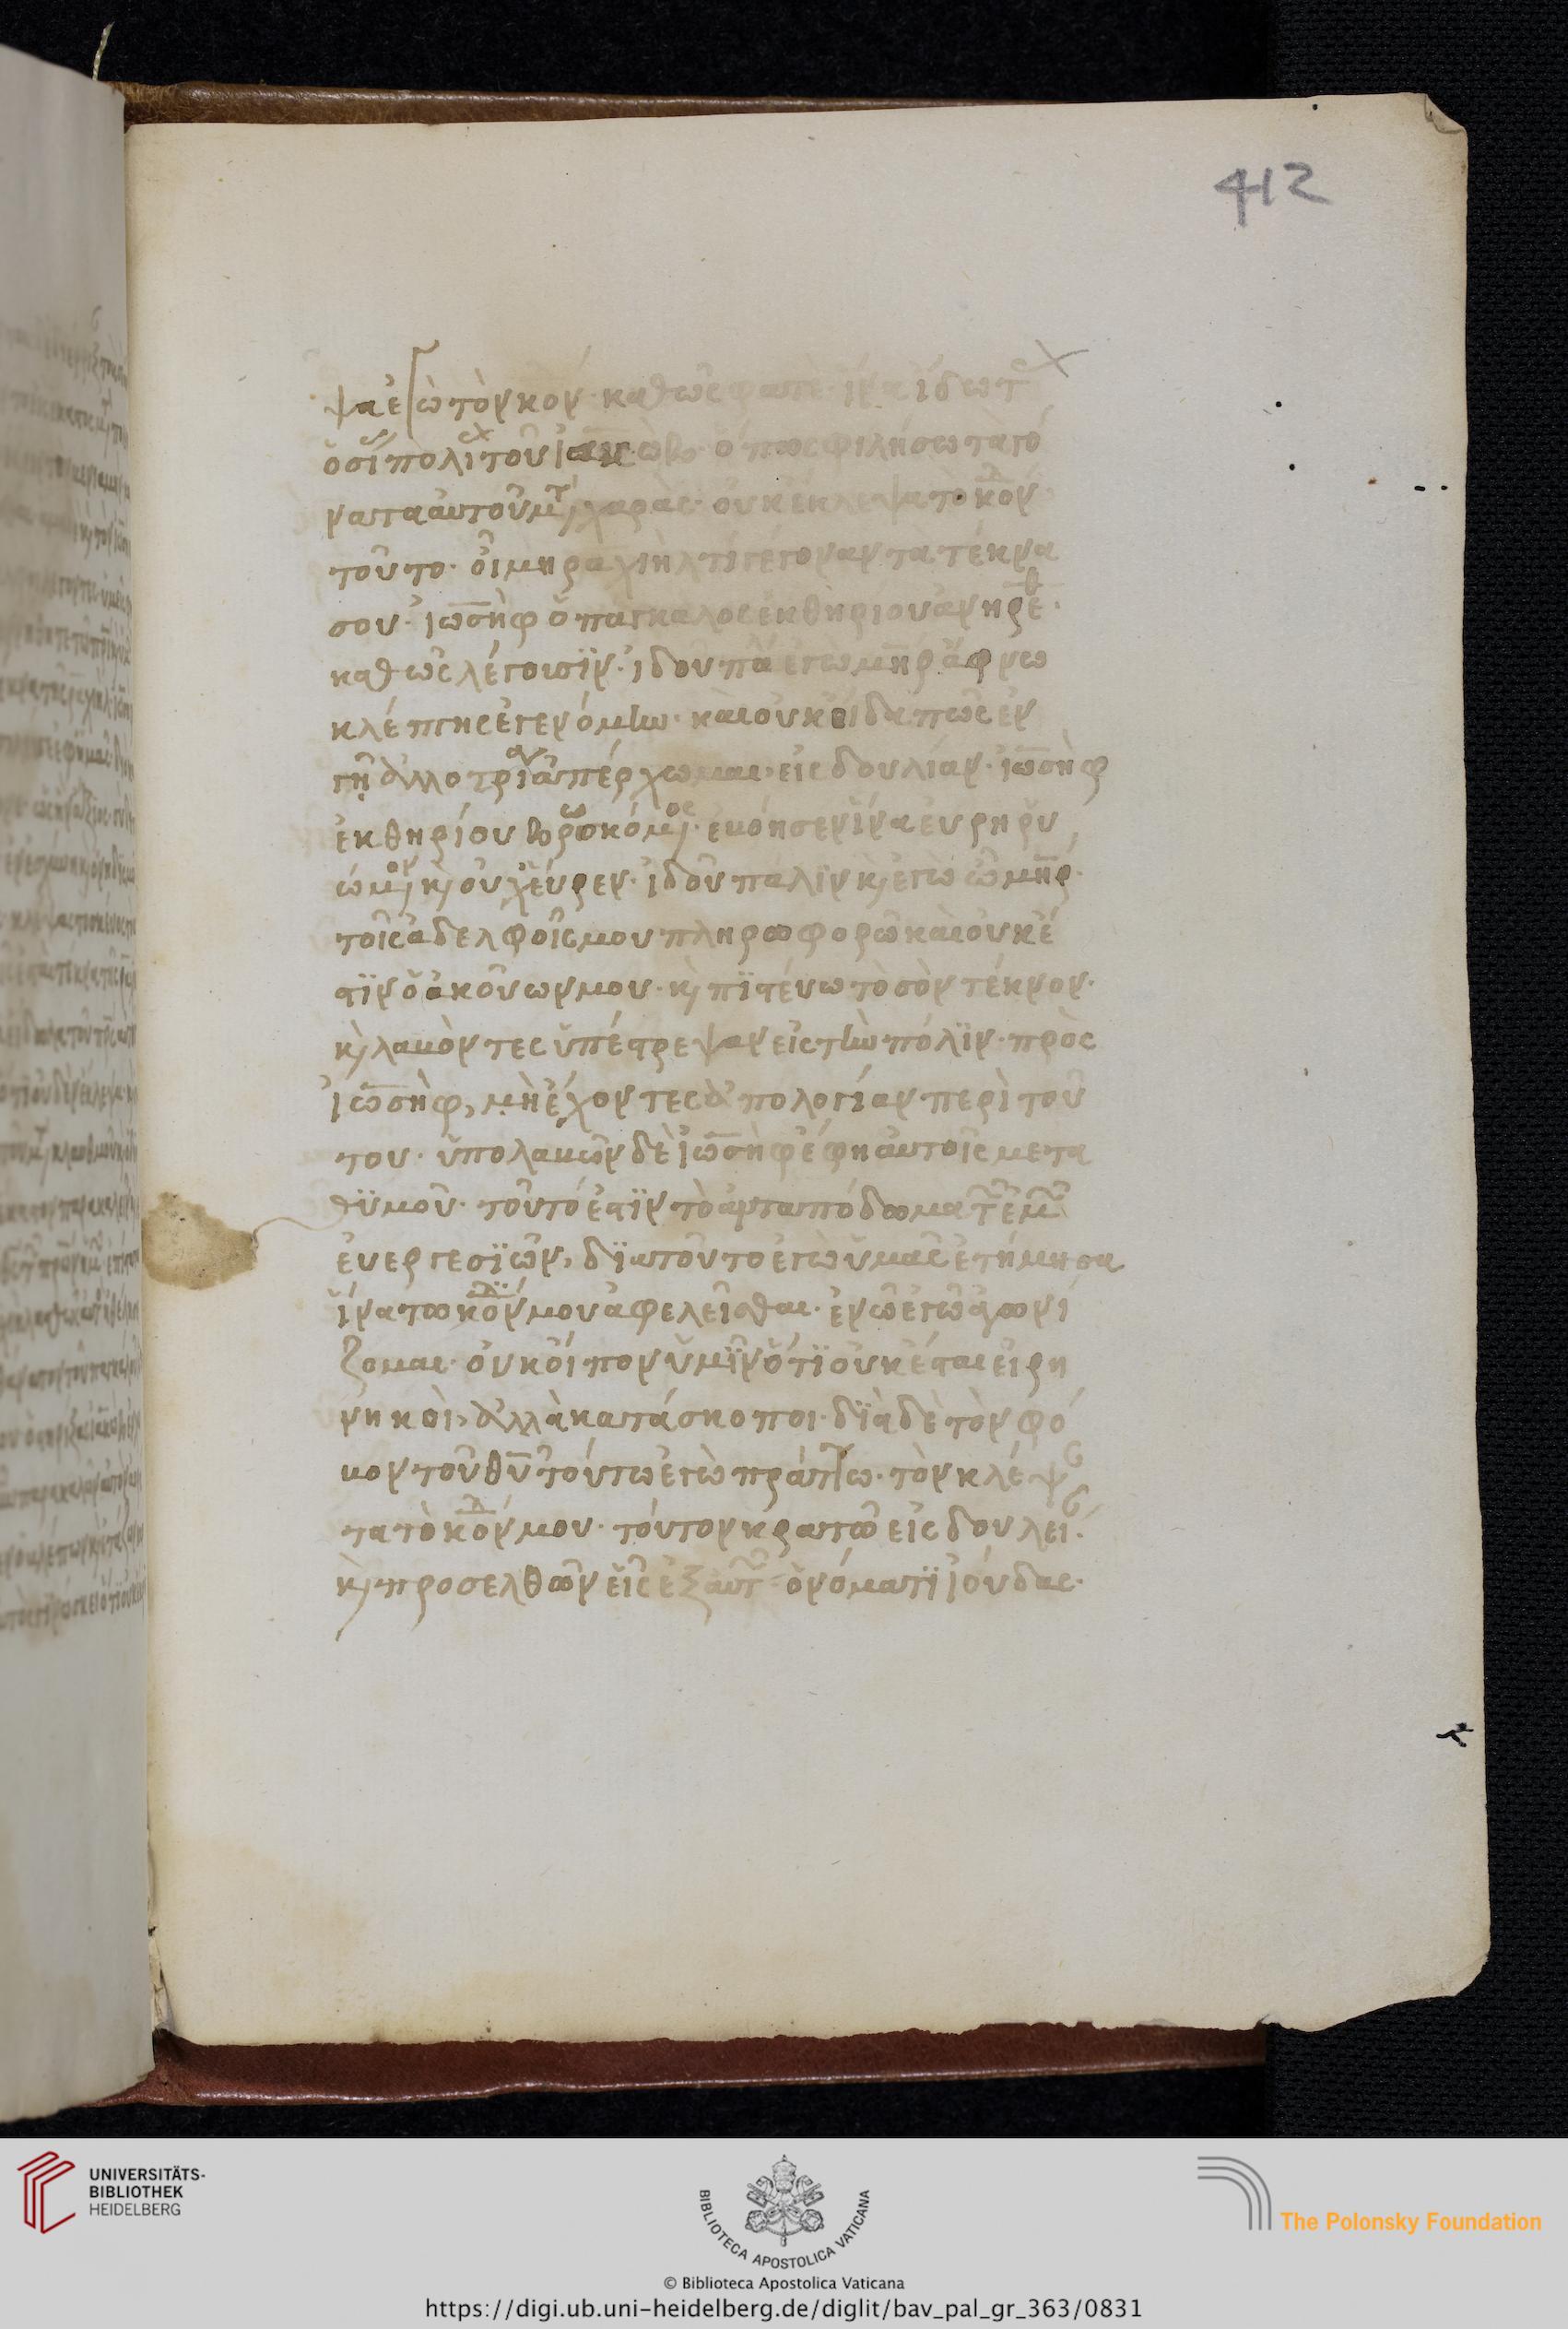 412
ψα ἐγὼ τὸν κόν· καθὼς φατε ἵνα ἴδω τ
τοῦ Ἰακὼβ· ὅπως φιλήσω τὰ γό
νατα αὐτοῦ μτ χαρᾶς· οὐκ ἔκλεψα τὸ κόν
τοῦτο· οἴμη ραχιὴλ τί γέγοναν τα τέκνα
σου· ἰωσὴφ ὁ πάγκαλος ἐκ θηρίου ἀνηρέθ·
καθὼς λέγοισϊν· ἰδοὺ πά ἐγὼ μηρ ἄφνω
κλέπτης ἐγενόμην· καὶ οὐκ οἶδα πῶς ἐν
γῇ ἀλλοτρία ἀπέρχωμαι· εἰς δουλίαν· ἰωσὴφ
ἐκ θηρίου βρωσκόμος· ἐβόησεν ἵνα εὑρη ρυ
ώμον κ οὐχ εὗρεν· ἰδοῦ πάλϊν κ ἐγὼ ὦ μηρ·
τοῖς ἀδελφοῖς μου πληρωφορῶ καὶ οὐκ ἔ
στϊν ὁ ἀκούων μου· κ πϊστέυω τὸ σὸν τέκνον·
κ λαβόντες ὑπέστρεψαν εἰς τὴν πόλϊν· πρὸς
ἰωσὴφ, μὴ ἔχοντες ἀπολογίαν περὶ τού
του· ὑπολαβὼν δὲ ἰωσὴφ ἔφη αὐτοῖς μετα
θϋμοῦ· τοῦτό ἐστϊν τὸ ἀνταπόδωμα τ ἐμ
ἐυεργεσϊῶν, δϊατοῦτο ἐγὼ ὑμᾶς ἐτήμησα
ἵνα τω κόνδϋ μου ἀφελεῖσθαι· ἐνῶ ἐγὼ ἀγωνί
ζομαι· οὐκ οἶπον ὑμῖν ὅτϊ οὐκ ἔσται εἰρη
νηκοὶ, ἀλλὰ κατάσκοποι· δϊὰ δὲ τὸν φό
βον τοῦ θῦ τούτω ἐγὼ πράττω· τὸν κλέψ
τα τὸ κόν μου· τόυτον κρατῶ εἰς δουλεί·
κ προσελθὼν εἷς ἐξ αὐτ ὀνόματϊ ἰούδας·
UNIVERSITÄTS-
BIBLIOTHEK
HEIDELBERG
BIBLIOTECA APOSTOLICA VATICANA
The Polonsky Foundation
© Biblioteca Apostolica Vaticana
https://digi.ub.uni-heidelberg.de/diglit/bav_pal_gr_363/0831